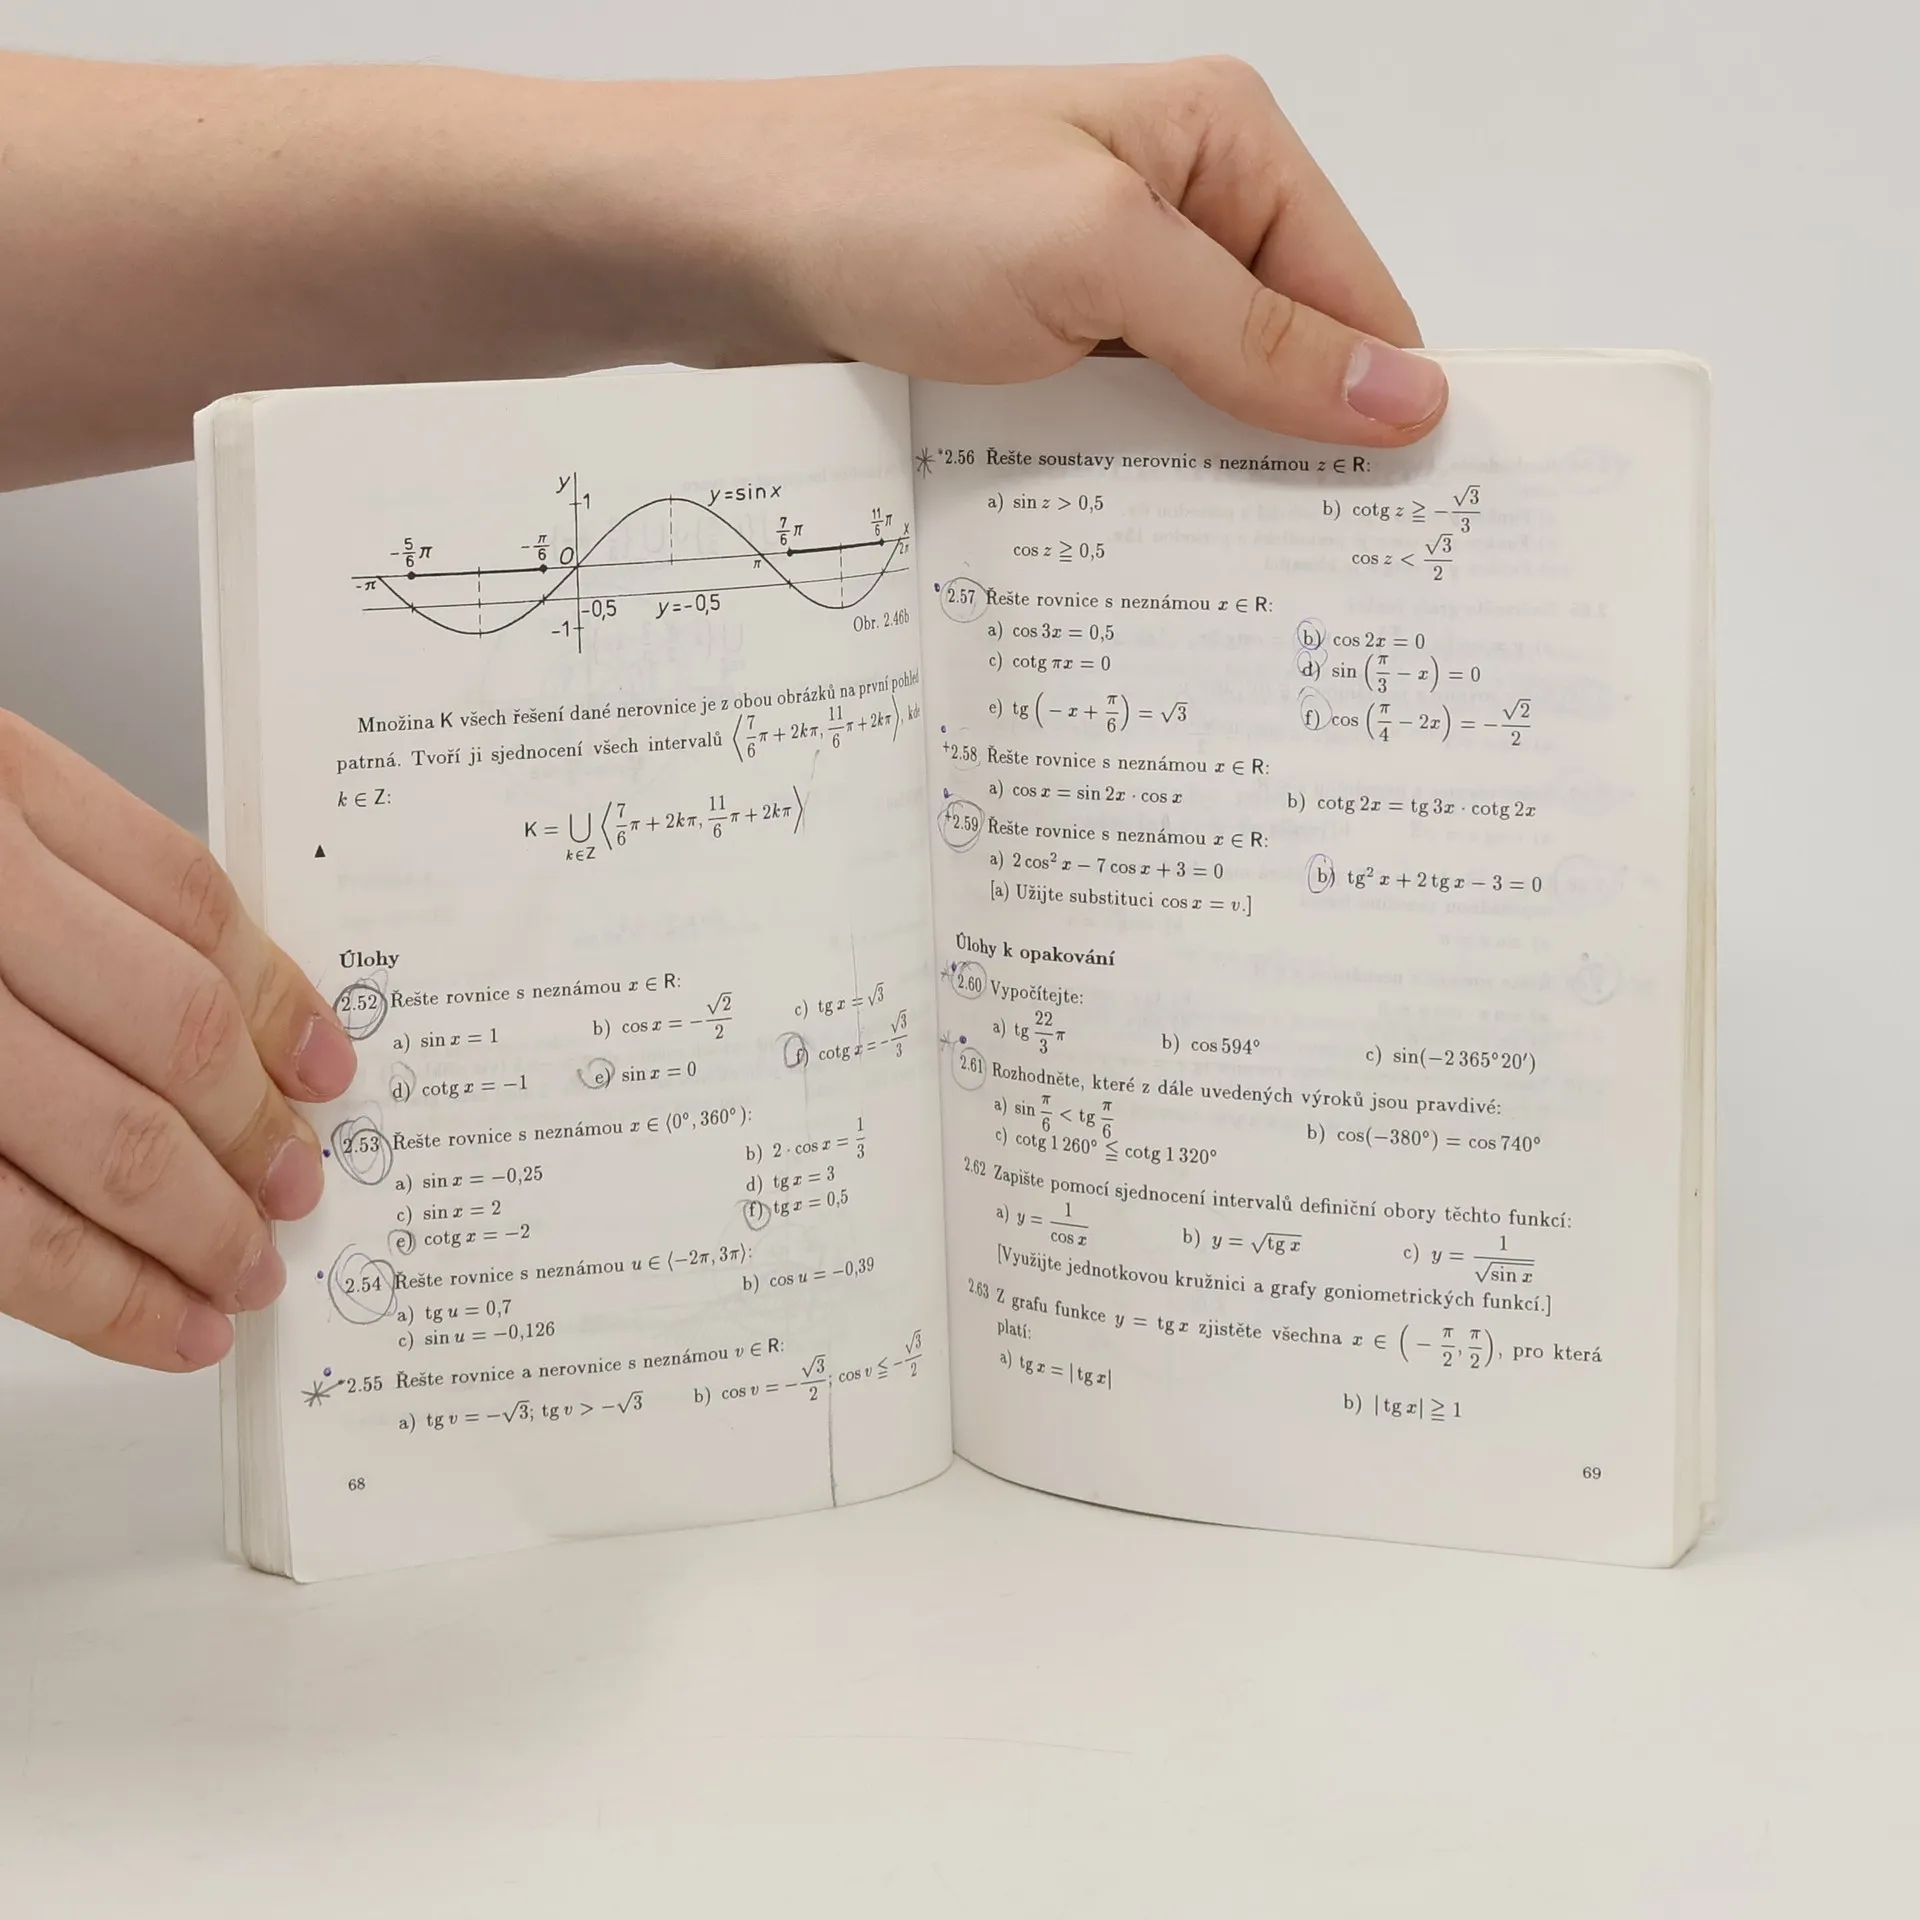 y
1
y=sin x
-5/6 π
-π/6
O
7/6 π
11/6 π
x
-π
π
2π
-0,5
y=-0,5
-1
Obr. 2.46b
Množina K všech řešení dané nerovnice je z obou obrázků na první pohled
patrná. Tvoří ji sjednocení všech intervalů ⟨7/6 π + 2kπ, 11/6 π + 2kπ⟩, kde
k ∈ Z:
K = ⋃ ⟨7/6 π + 2kπ, 11/6 π + 2kπ⟩
k∈Z
▲
Úlohy
2.52 Řešte rovnice s neznámou x ∈ R:
a) sin x = 1 b) cos x = −√2/2 c) tg x = √3
d) cotg x = −1 e) sin x = 0 f) cotg x = −√3/3
2.53 Řešte rovnice s neznámou x ∈ ⟨0°, 360°):
a) sin x = −0,25 b) 2 · cos x = 1/3
c) sin x = 2 d) tg x = 3
e) cotg x = −2 f) tg x = 0,5
2.54 Řešte rovnice s neznámou u ∈ ⟨−2π, 3π⟩:
a) tg u = 0,7 b) cos u = −0,39
c) sin u = −0,126
*2.55 Řešte rovnice a nerovnice s neznámou v ∈ R:
a) tg v = −√3; tg v > −√3 b) cos v = −√3/2; cos v ≦ −√3/2
68
*2.56 Řešte soustavy nerovnic s neznámou z ∈ R:
a) sin z > 0,5 b) cotg z ≧ −√3/3
cos z ≧ 0,5 cos z < √3/2
2.57 Řešte rovnice s neznámou x ∈ R:
a) cos 3x = 0,5 b) cos 2x = 0
c) cotg πx = 0 d) sin (π/3 − x) = 0
e) tg (−x + π/6) = √3 f) cos (π/4 − 2x) = −√2/2
+2.58 Řešte rovnice s neznámou x ∈ R:
a) cos x = sin 2x · cos x b) cotg 2x = tg 3x · cotg 2x
+2.59 Řešte rovnice s neznámou x ∈ R:
a) 2 cos² x − 7 cos x + 3 = 0 b) tg² x + 2 tg x − 3 = 0
[a) Užijte substituci cos x = v.]
Úlohy k opakování
2.60 Vypočítejte:
a) tg 22/3 π b) cos 594° c) sin(−2 365°20′)
2.61 Rozhodněte, které z dále uvedených výroků jsou pravdivé:
a) sin π/6 < tg π/6 b) cos(−380°) = cos 740°
c) cotg 1 260° ≦ cotg 1 320°
2.62 Zapište pomocí sjednocení intervalů definiční obory těchto funkcí:
a) y = 1/cos x b) y = √tg x c) y = 1/√sin x
[Využijte jednotkovou kružnici a grafy goniometrických funkcí.]
2.63 Z grafu funkce y = tg x zjistěte všechna x ∈ (−π/2, π/2), pro která
platí:
a) tg x = |tg x| b) |tg x| ≧ 1
69